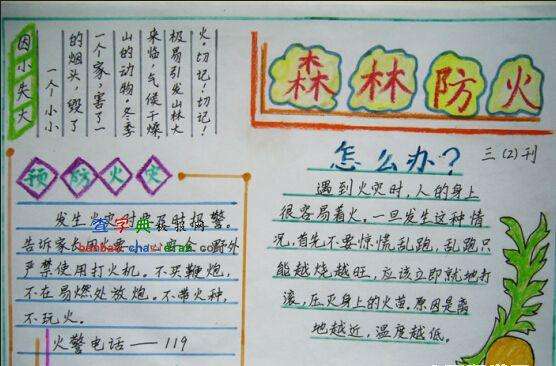 因小失大
一个小小
的烟头，毁了
一个家，害了一
山的动物。冬季
来临，气候干燥，
极易引发山林大
火，切记！切记！
森林防火
三（2）刊
预防火灾
发生火灾时要及时报警。
查字典
告诉家人用火要 野外
严禁使用打火机。不买鞭炮，
不在易燃处放炮。不带火种，
不玩火。
火警电话——119
怎么办？
遇到火灾时，人的身上
很容易着火，一旦发生这种情
况，首先不要惊慌乱跑，乱跑只
能越烧越旺，应该立即就地打
滚，压灭身上的火苗，原因是离
地越近，温度越低。